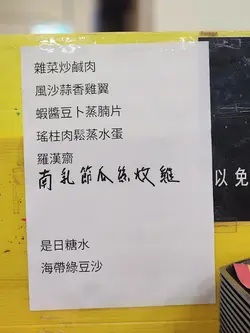 雜菜炒鹹肉
風沙蒜香雞翼
蝦醬豆卜蒸腩片
瑤柱肉鬆蒸水蛋
羅漢齋
南乳節瓜絲炆雞
是日糖水
海帶綠豆沙
以免